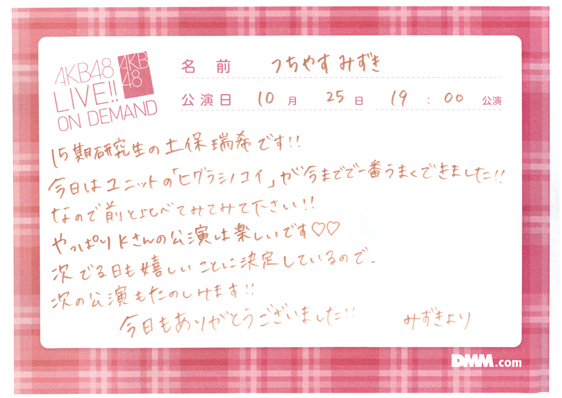 AKB48
LIVE!!
ON DEMAND
AKB
48
名前 つちやすみずき
公演日 10月 25日 19:00 公演
15期研究生の土保瑞希です!!
今日はユニットの「ヒグラシノコイ」が今までで一番うまくできました!!
なので前と比べてみてみて下さい!!
やっぱりKさんの公演は楽しいです♡♡
次でる日も嬉しいことに決定しているので、
次の公演もたのしみます!!
今日もありがとうございました!! みずきより
DMM.com